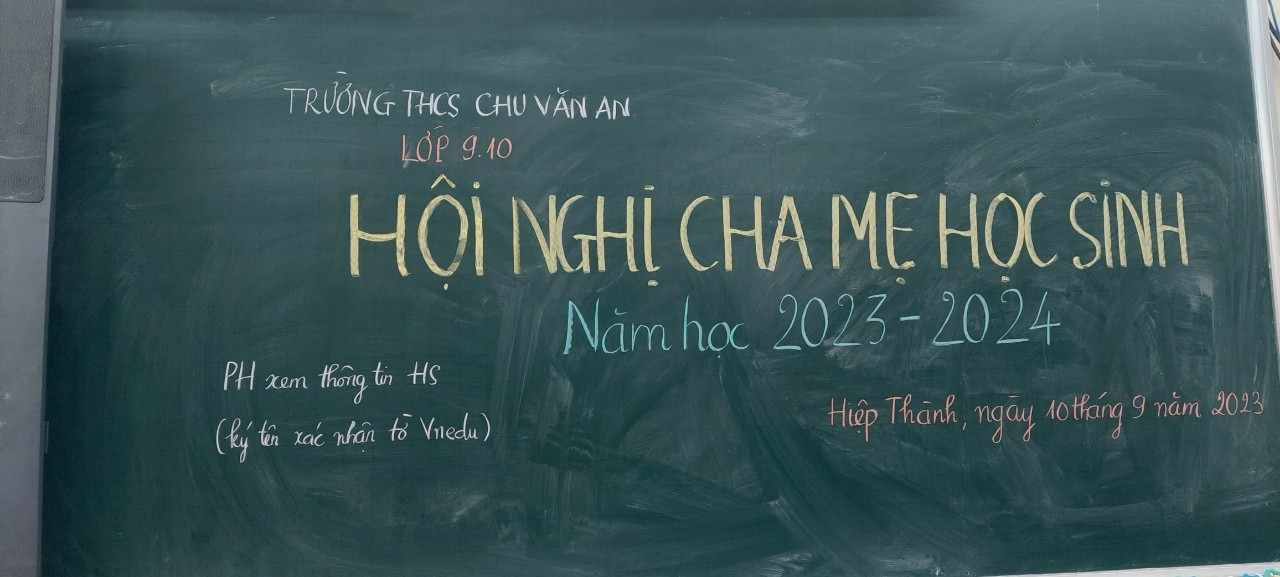 TRƯỜNG THCS CHU VĂN AN
LỚP 9.10
HỘI NGHỊ CHA MẸ HỌC SINH
Năm học 2023 - 2024
PH xem thông tin HS
(ký tên xác nhận tờ Vnedu)
Hiệp Thành, ngày 10 tháng 9 năm 2023